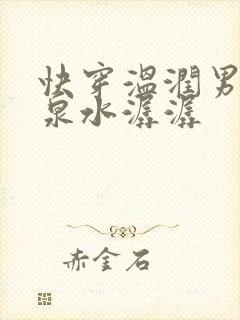 快穿温润男
泉水潺潺
赤金石